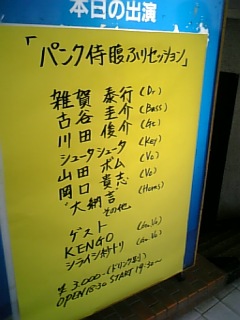 本日の出演
「パンク侍腹ふりセッション」
雑賀 泰行 (Dr)
古谷 圭介 (Bass)
川田 俊介 (Gt)
シュータシュータ (Key)
山田 ボム (Vo)
岡口 貴志 (Vo)
"大納言" (Horns)
その他
ゲスト
KENGO (Gt.Vo)
シライシ紗トリ (Gt.Vo)
¥3,000-(ドリンク別)
OPEN 18:30 START 19:30~